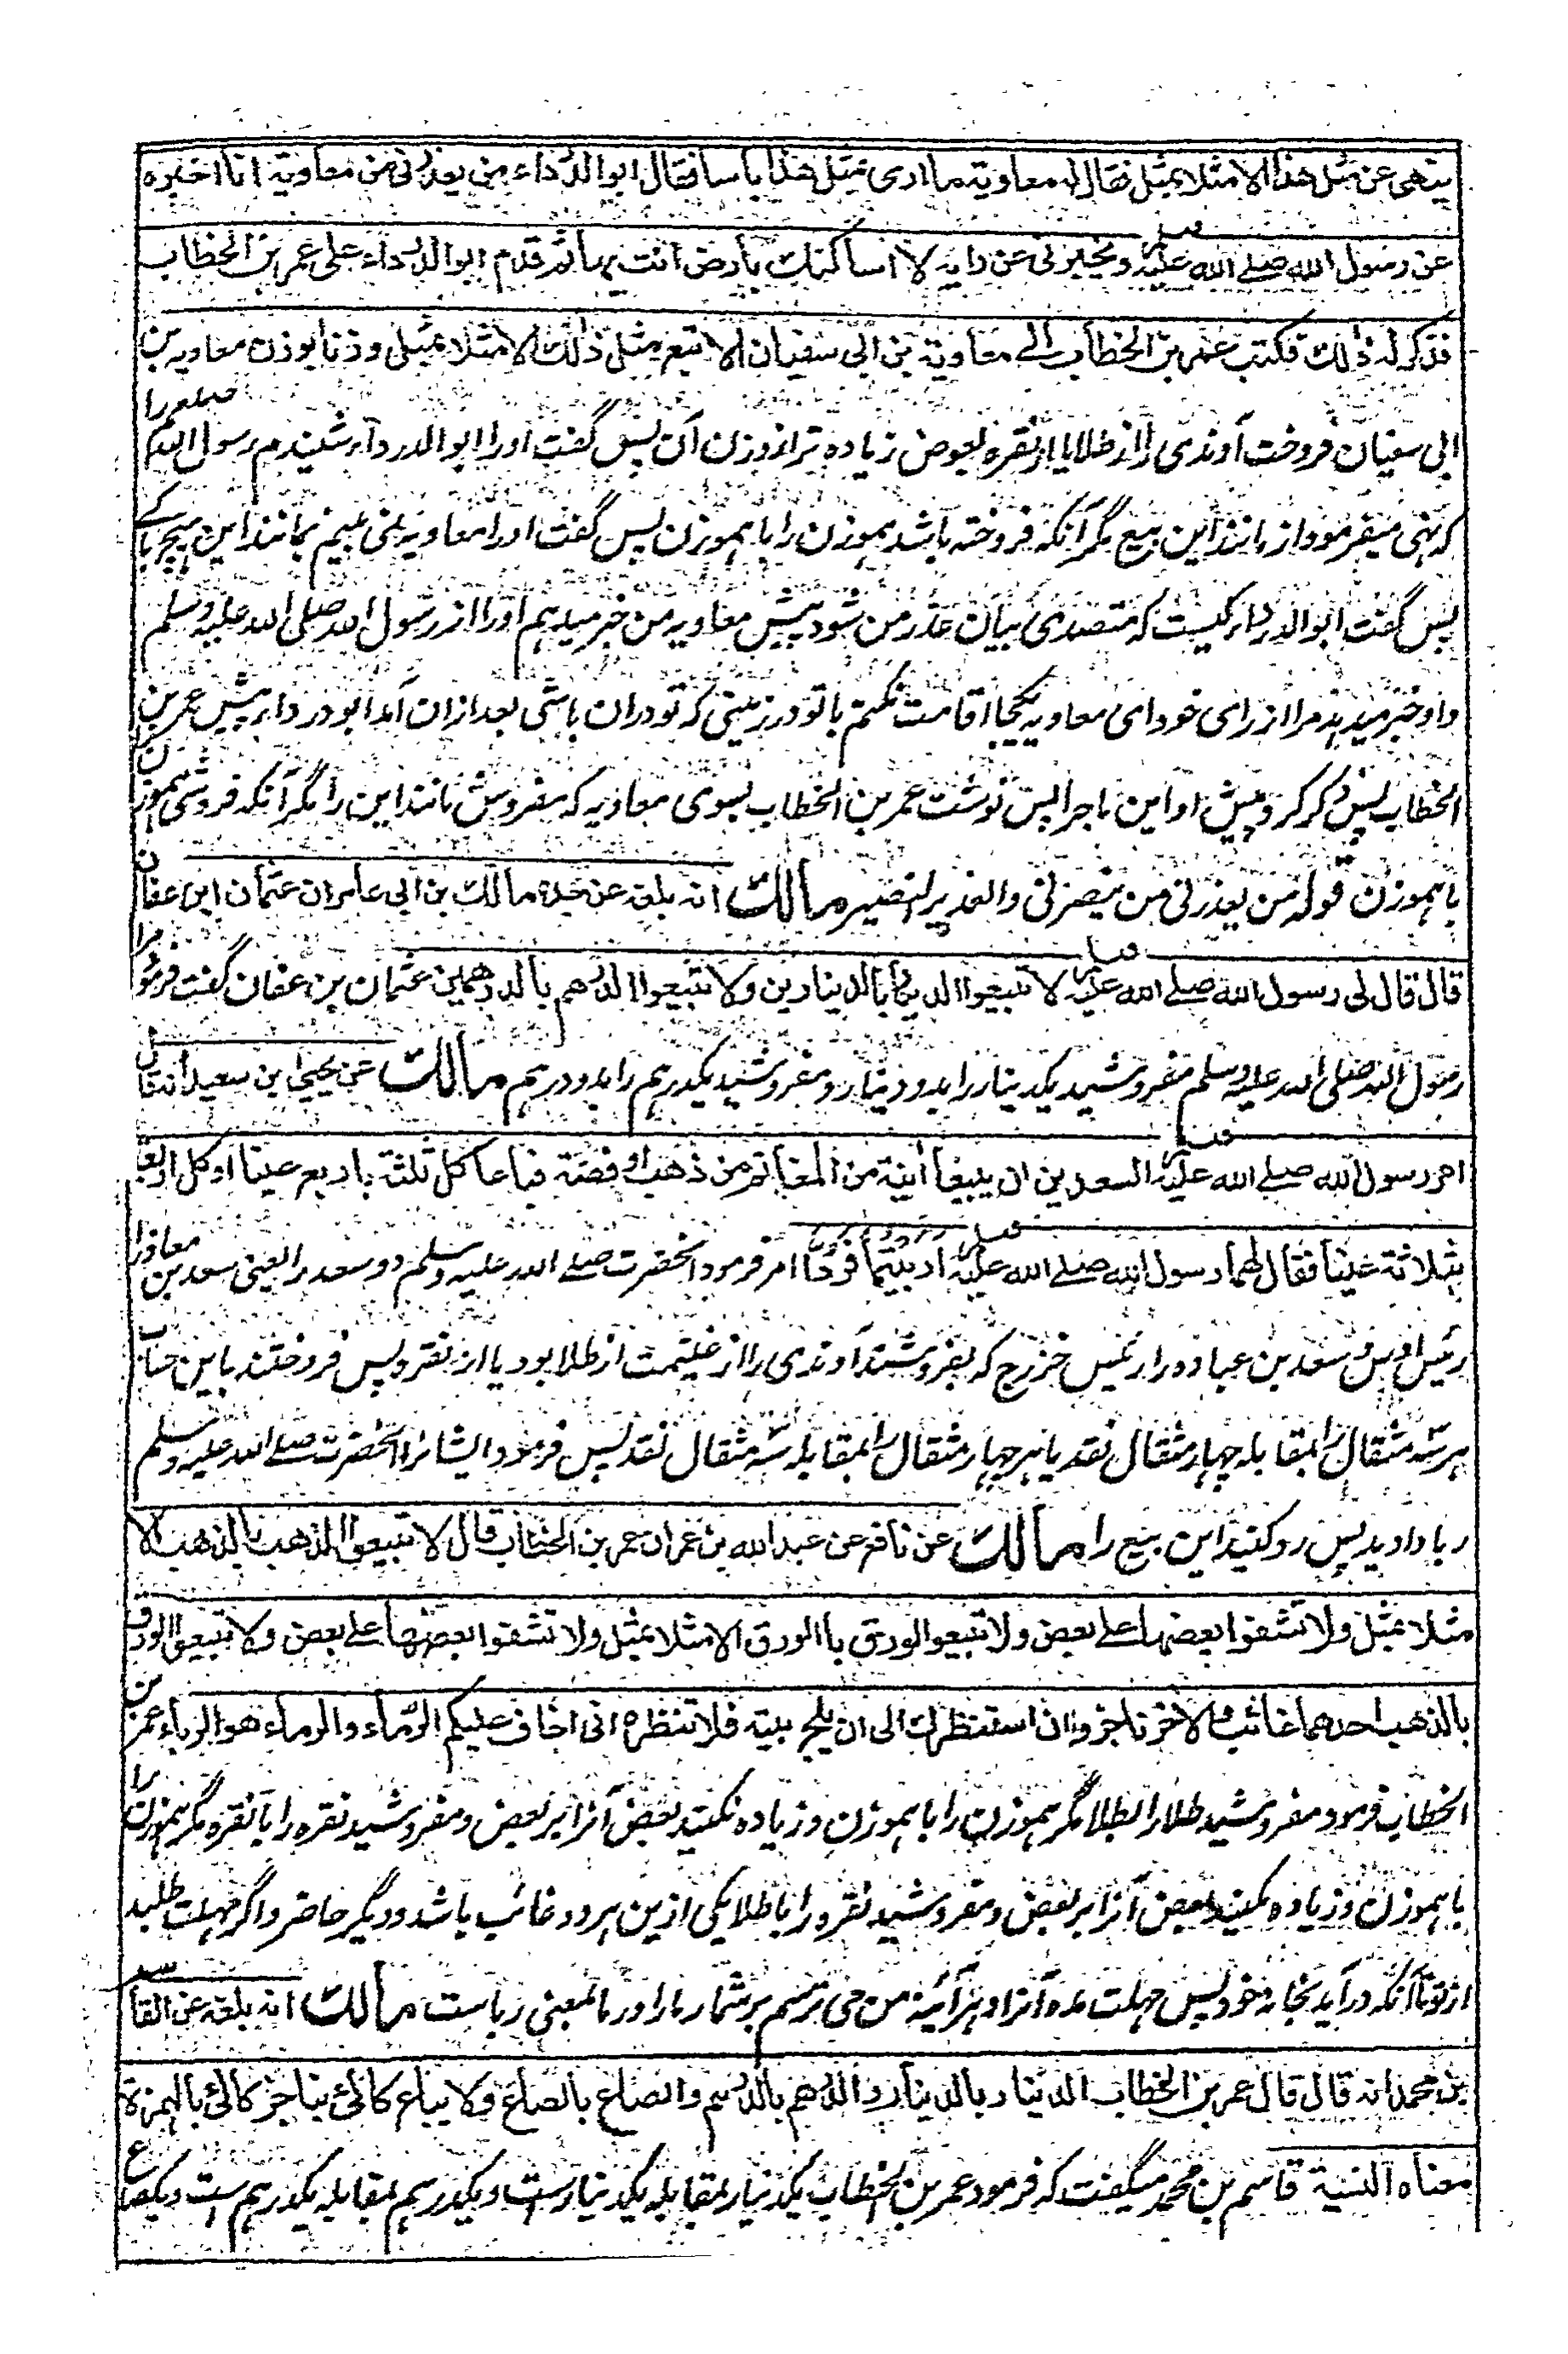 ينهى عن مثل هذا الا مثلا بمثل فقال له معاوية ما ارى بمثل هذا باسا فقال ابو الدرداء من يعذرنى من معاوية انا اخبره
عن رسول الله صلے الله عليه وسلم ويخبرنى عن رايه لا اساكنك بأرض انت بها ثم قدم ابو الدرداء على عمر بن الخطاب
فذكر له ذلك فكتب عمر بن الخطاب الے معاوية بن ابى سفيان الا تبع مثل ذلك الا مثلا بمثل وزنا بوزن معاويه بن
ابى سفيان فروخت آوندى را از طلا يا از نقره بعوض زياده تر از وزن آن پس گفت او را ابو الدرداء شنيدم رسول الله صلعم را
كه نهى ميفرمود از مانند اين بيع مگر آنكه فروخته باشد هموزن را با هموزن پس گفت او را معاويه نمى بينم بمانند اين هيچ باكے
پس گفت ابو الدرداء كيست كه متصدى بيان عذر من شود پيش معاويه من خبر ميدهم او را از رسول الله صلى الله عليه وسلم
و او خبر ميدهد مرا از راى خود اى معاويه يكجا اقامت نكنم با تو در زمينى كه تو دران باشى بعد ازان آمد ابو درداء بر پيش عمر بن
الخطاب پس ذكر كرد پيش او اين ماجرا پس نوشت عمر بن الخطاب بسوى معاويه كه مفروش مانند اين را مگر آنكه فروشى هموزن
با هموزن قوله من يعذرنى من ينصرنى والعذير النصير مالك انه بلغه عن جده مالك بن ابى عامر ان عثمان ابن عفان
قال قال لى رسول الله صلے الله عليه وسلم لا تبيعوا الدينار بالدينارين ولا تبيعوا الدرهم بالدرهمين عثمان بن عفان گفت فرمود مرا
رسول الله صلى الله عليه وسلم مفروشيد يكدينار را بدو دينار و مفروشيد يكدرهم را بدو درهم مالك عن يحيى ابن سعيد انه قال
امر رسول الله صلے الله عليه وسلم السعدين ان يبيعا آنية من المغانم من ذهب او فضة فباعا كل ثلثة باربعة عينا او كل اربعة
بثلاثة عينا فقال لهما رسول الله صلے الله عليه وسلم اربيتما فردا امر فرمود آنحضرت صلے الله عليه وسلم دو سعد را يعنى سعد بن معاذ را
رئيس اوس و سعد بن عباده را رئيس خزرج كه بفروشند آوندى را از غنيمت از طلا بود يا از نقره پس فروختند باين حساب
هر سه مثقال را بمقابله چهار مثقال نقد يا هر چهار مثقال را بمقابله سه مثقال نقد پس فرمود ايشانرا آنحضرت صلے الله عليه وسلم
ربا داديد پس رد كنيد اين بيع را مالك عن نافع عن عبد الله بن عمر ان عمر بن الخطاب قال لا تبيعوا الذهب بالذهب الا
مثلا بمثل ولا تشفوا بعضها علے بعض ولا تبيعوا الورق باالورق الا مثلا بمثل ولا تشفوا بعضها علے بعض ولا تبيعوا الورق
بالذهب احدهما غائب والآخر ناجز وان استنظرك الى ان يلج بيته فلا تنظره انى اخاف عليكم الرماء والرماء هو الرباء عمر بن
الخطاب فرمود مفروشيد طلا را بطلا مگر هموزن را با هموزن و زياده نكنند بعض آنرا بر بعض و مفروشيد نقره را با نقره مگر هموزن را
با هموزن و زياده مكنيد بعض آنرا بر بعض و مفروشيد نقره را با طلا يكى ازين هر دو غائب باشد و ديگر حاضر و اگر مهلت طلبد
از تو تا آنكه درآيد بخانه خود پس مهلت مده آنرا و هر آئينه من مى ترسم بر شما رما را و رما بمعنى رباست مالك انه بلغه عن القاسم
بن محمد انه قال قال عمر بن الخطاب الدينار بالدينار والدرهم بالدرهم والصاع بالصاع ولا يباع كالئ بناجز كالئ بالهمزة
معناه النسية قاسم بن محمد ميگفت كه فرمود عمر بن الخطاب يكدينار بمقابله يكدينار است و يكدرهم بمقابله يكدرهم است و يكصاع